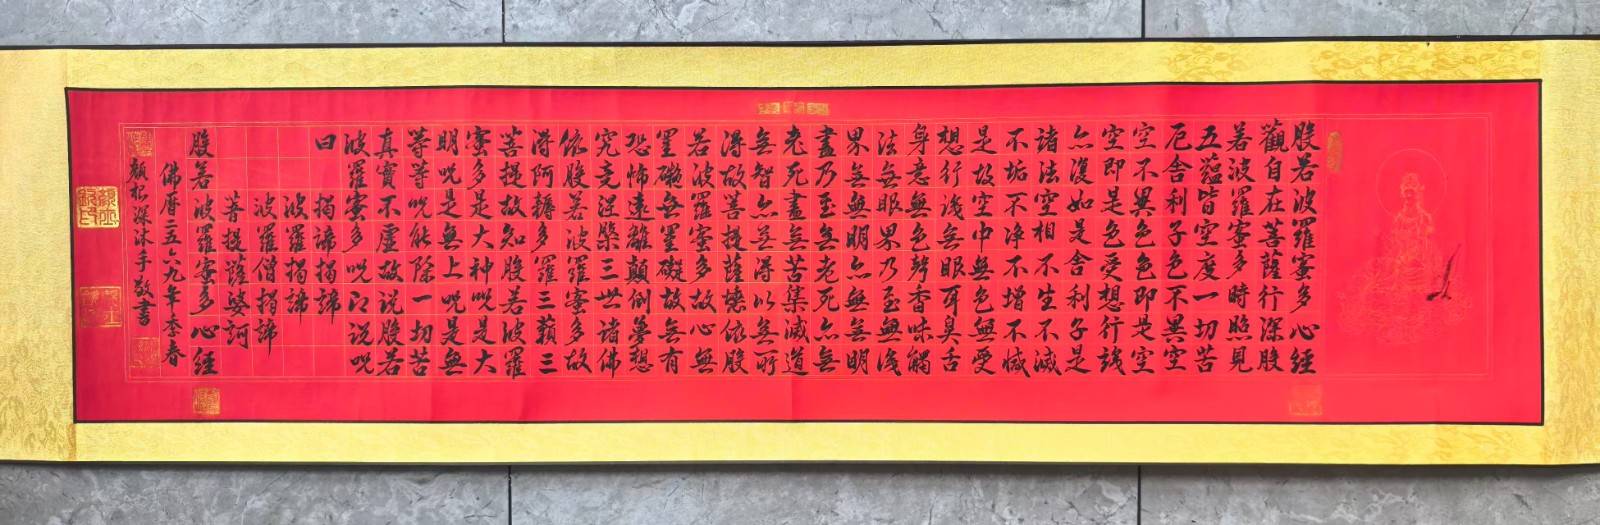 般若波羅蜜多心經
觀自在菩薩行深般
若波羅蜜多時照見
五蘊皆空度一切苦
厄舍利子色不異空
空不異色色即是空
空即是色受想行識
亦復如是舍利子是
諸法空相不生不滅
不垢不净不增不減
是故空中無色無受
想行識無眼耳鼻舌
身意無色聲香味觸
法無眼界乃至無識
界無無明亦無無明
盡乃至無老死亦無
老死盡無苦集滅道
無智亦無得以無所
得故菩提薩埵依般
若波羅蜜多故心無
罣礙無罣礙故無有
恐怖遠離顛倒夢想
究竟涅槃三世諸佛
依般若波羅蜜多故
得阿耨多羅三藐三
菩提故知般若波羅
蜜多是大神咒是大
明咒是無上咒是無
等等咒能除一切苦
真實不虛故說般若
波羅蜜多咒即說咒
曰
揭諦揭諦
波羅揭諦
波羅僧揭諦
菩提薩婆訶
般若波羅蜜多心經
佛曆二五六九年季春
顏根深沐手敬書